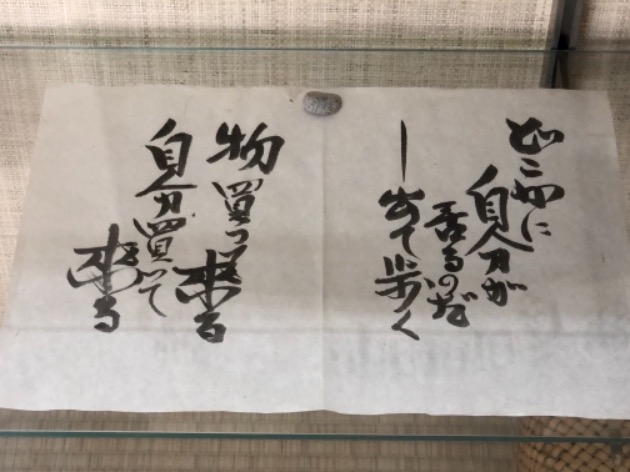 どこかに
自分が
居るのだ
―出て歩く
物買って
来る
自分買って
来る